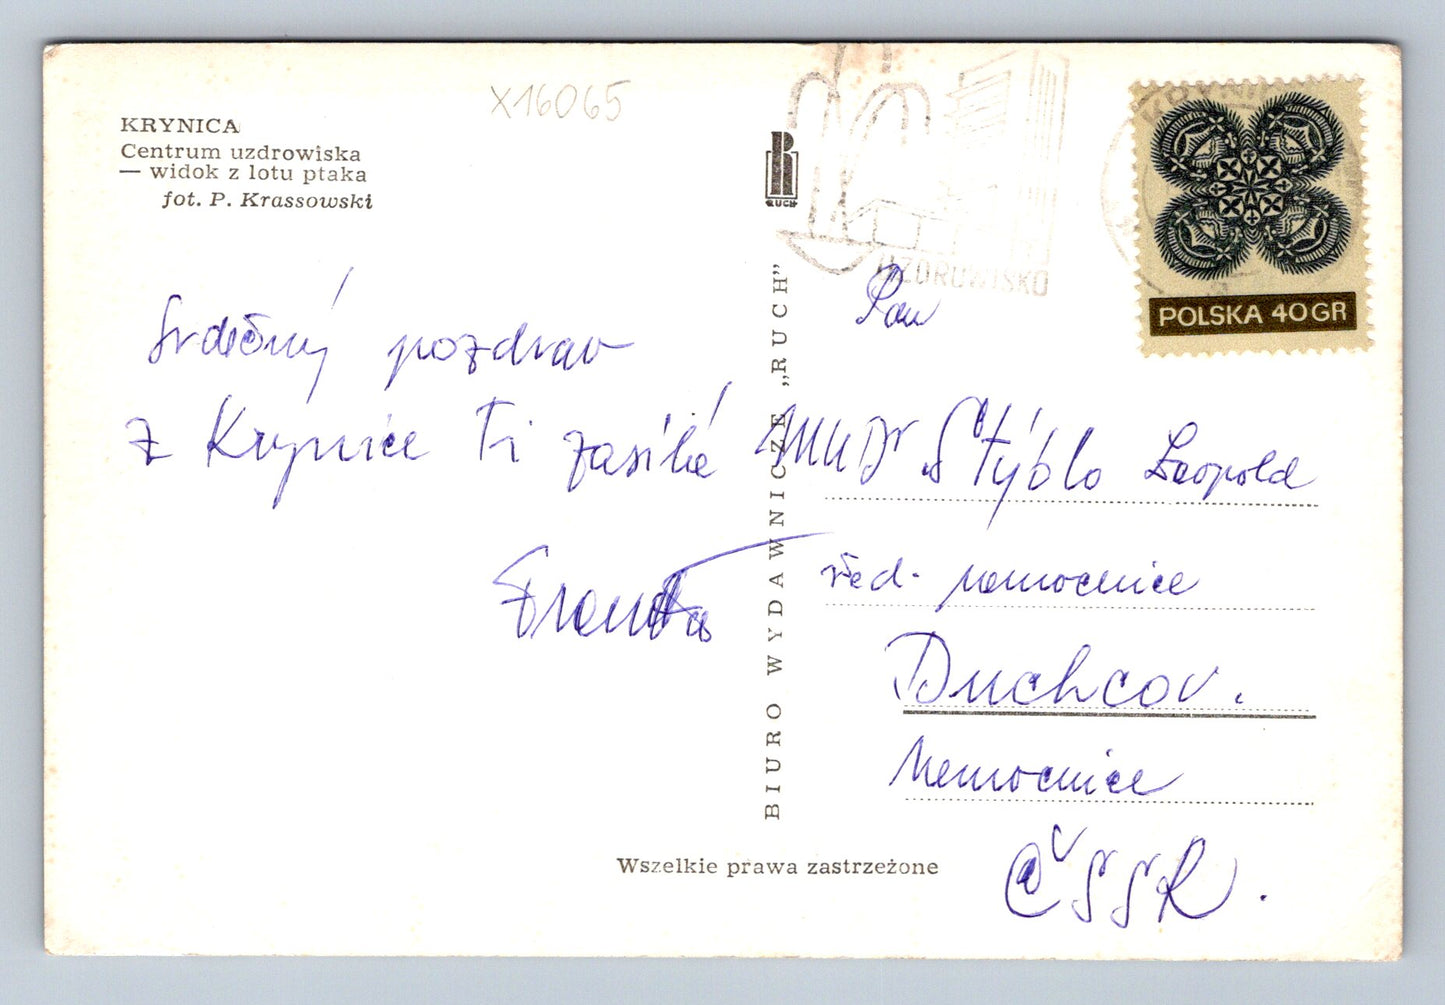 X16065
KRYNICA
Centrum uzdrowiska
— widok z lotu ptaka
fot. P. Krassowski
Srdečný pozdrav
z Krynice Ti zasílá
Franta
RUCH
BIURO WYDAWNICZE „RUCH”
UZDROWISKO
POLSKA 40GR
Pan
MUDr Stýblo Leopold
řed. nemocnice
Duchcov.
Nemocnice
ČSSR.
Wszelkie prawa zastrzeżone